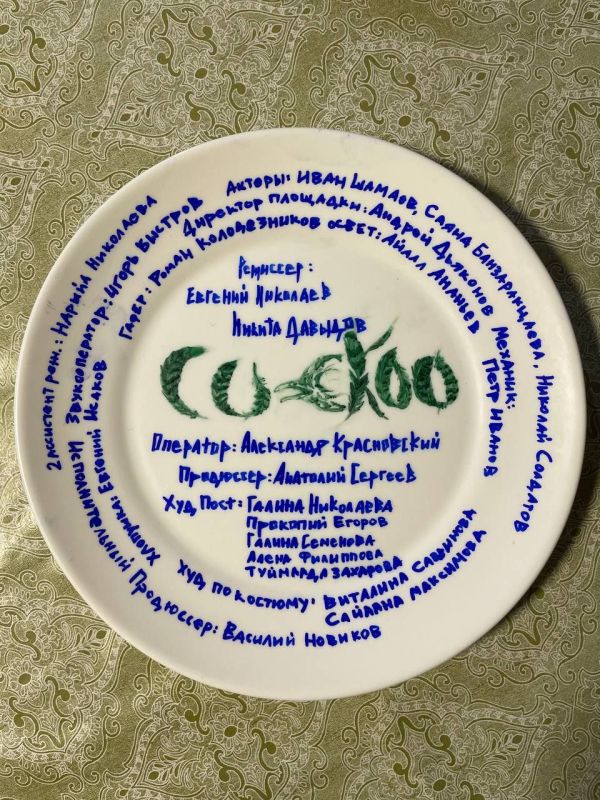 Акторы: Иван Шамаев, Саяна Банзаракцаева, Николай Солдатов
Директор площадки: Андрей Дьяконов Механик:
Петр Иванов
Гафер: Роман Колодезников осВет: Айаал Ананьев
2 Ассистент реж.: Нарыйа Николаева
Звукооператор: Игорь Быстров
Хлопушка: Евгений
Исполнительный Продюссер: Василий Новиков
Режиссер:
Евгений Николаев
Никита Давыдов
CU-CKOO
Оператор: Александр Красновский
Продюссер: Анатолий Сергеев
Худ Пост: Галина Николаева
Прокопий Егоров
Галина Семенова
Алена Филиппова
Туймаада Захарова
Худ по костюму: Виталина Саввинова
Сайлана Максимова